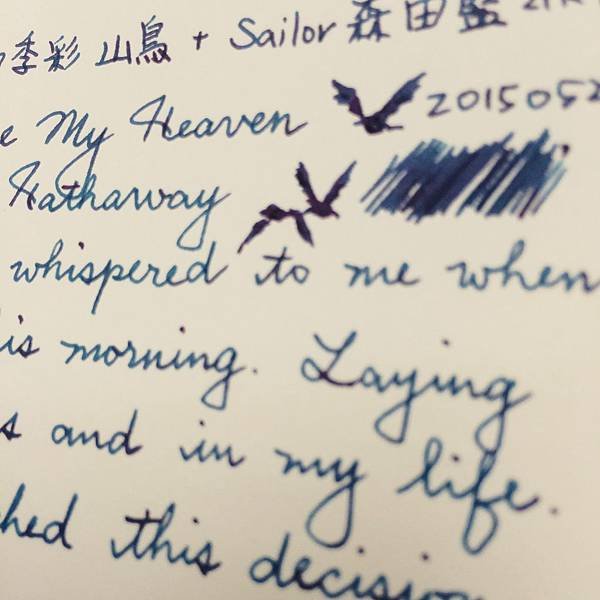 季彩 山鳥 + Sailor 森田藍
e My Heaven 201505
Hathaway
whispered to me when
is morning. Laying
s and in my life.
hed this decision